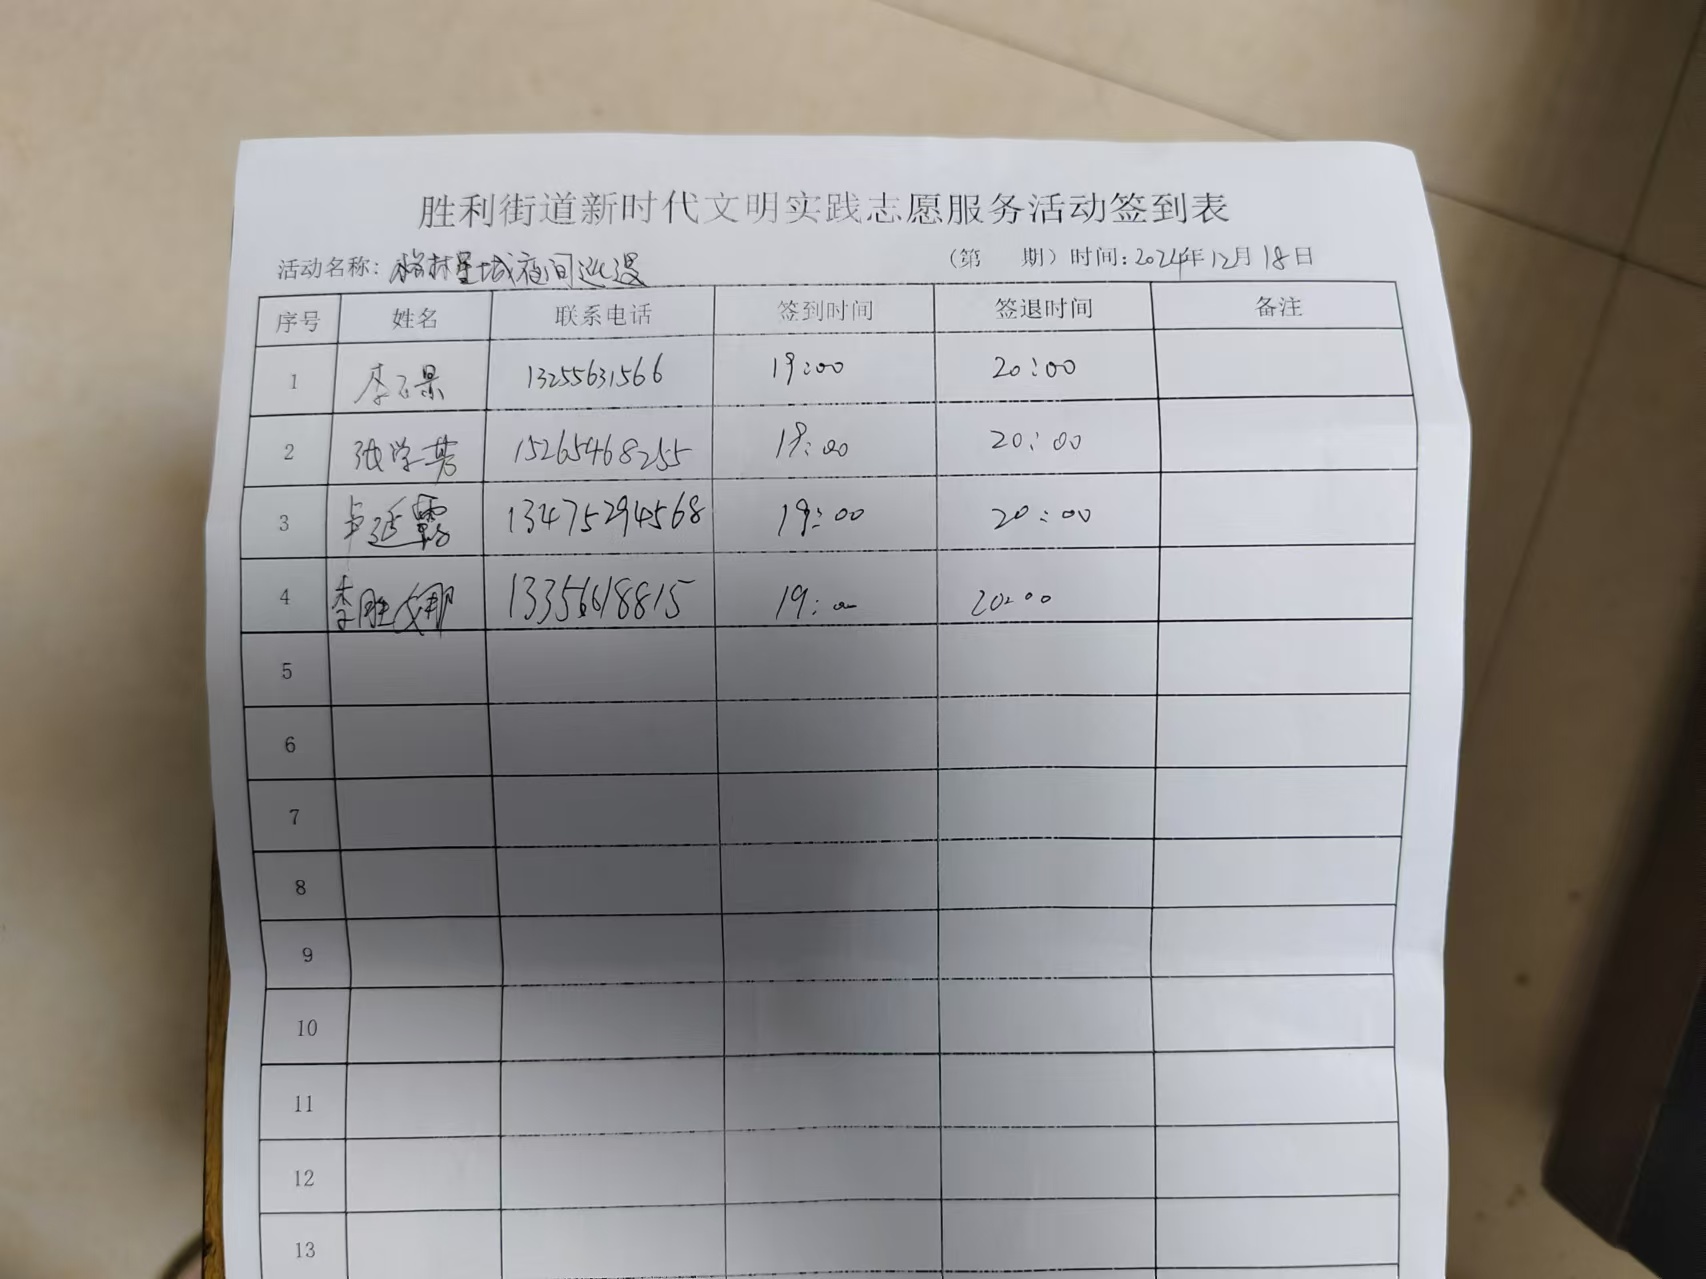 胜利街道新时代文明实践志愿服务活动签到表
活动名称：格林星城夜间巡逻 （第 期）时间：2024年12月18日
序号 姓名 联系电话 签到时间 签退时间 备注
1 13255631566 19:00 20:00
2 张学芳 15265468255 19:00 20:00
3 卢延霞 13475294568 19:00 20:00
4 李胜男 13356618815 19:00 20:00
5
6
7
8
9
10
11
12
13